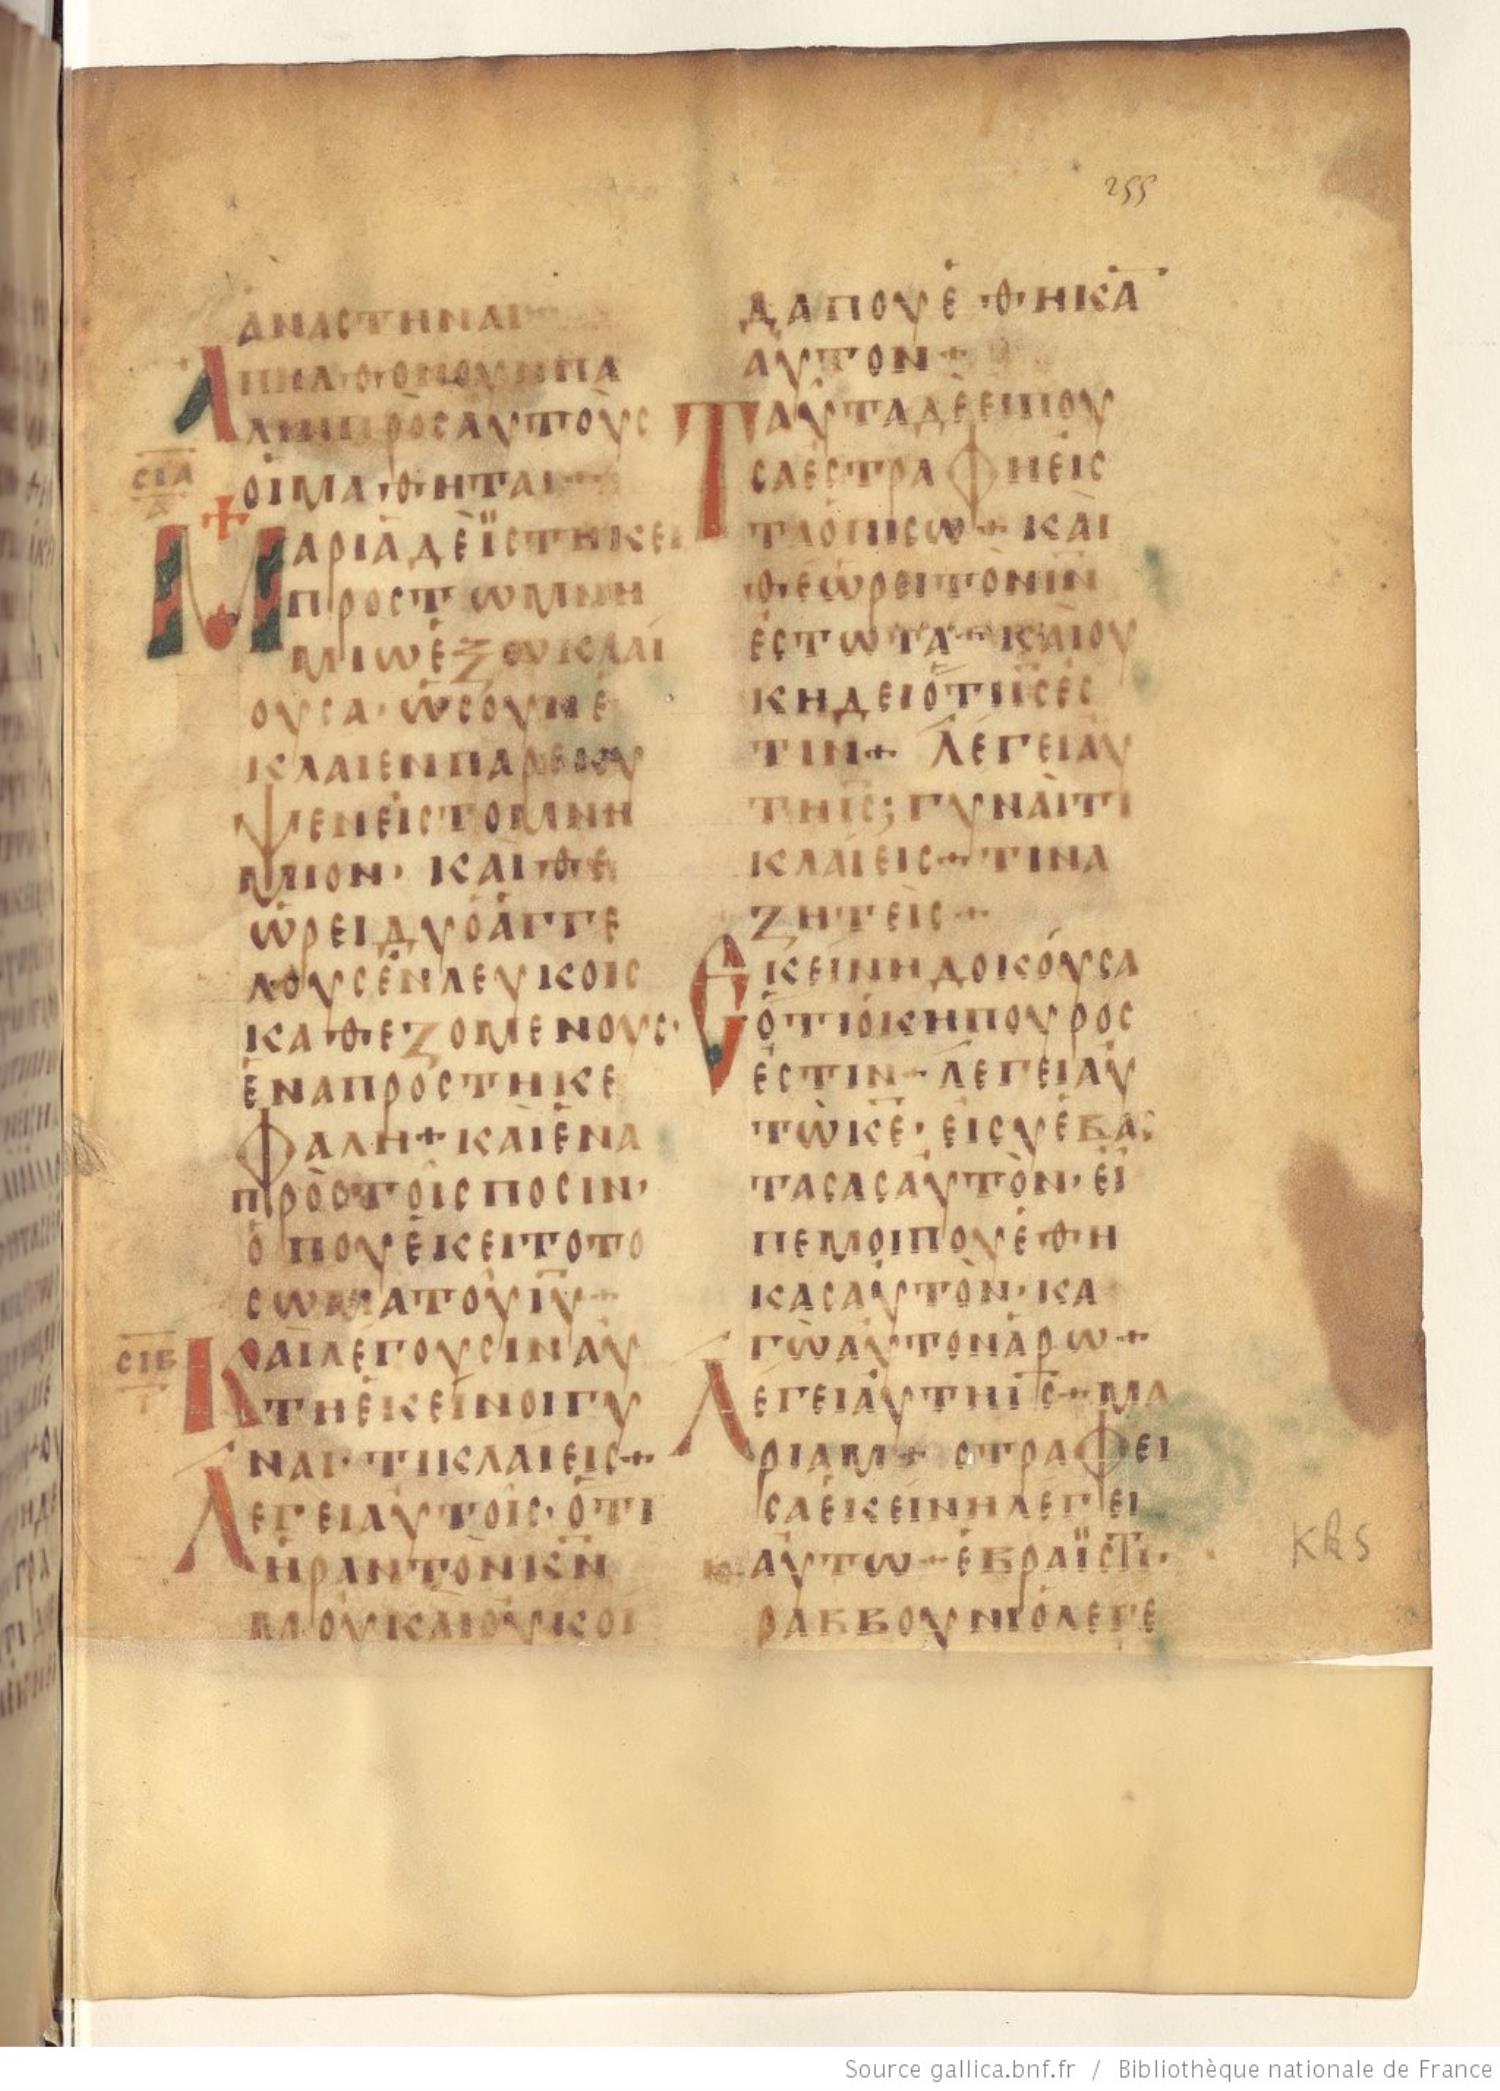 255
ἀναστῆναι
Ἀπῆλθον οὖν πά
λιν πρὸς αὐτοὺς
οἱ μαθηταί
ϹΙΑ
Α
Μαρία δὲ ἱστήκει
προς τω μνη
μίω ἔξω κλαί
ουσα· ὡς οὖν ἔ
κλαιεν παρεκυ
ψεν εἰς το μνη
μιον· καὶ θε
ωρεῖ δύο ἀγγέ
λους ἐν λευκοις
καθεζομενους·
ἕνα πρὸς τη κε
φαλη + καὶ ἕνα
πρὸς τοῖς ποσιν·
ὅπου ἔκειτο το
σωμα του ΙΥ +
ϹΙΒ
Ι
Και λέγουσιν αὐ
τη ἐκεῖνοι γύ
ναι· τι κλαιεις +
Λεγει αὐτοις· ὅτι
ἦραν τὸν ΚΝ
μου και οὐκ οι
δα που ἔθηκᾱ
αυτον +
Ταῦτα δὲ εἰπου
σα ἐστραφη εἰς
τα ὀπισω + καὶ
θεωρει τὸν ΙΝ
ἑστωτα + καὶ ου
κ ηδει ὅτι ΙϹ ἐς
τιν + λέγει αυ
τη ΙϹ; γυναὶ τι
κλαίεις + τινα
ζητεῖς +
Ἐκείνη δοκοῦσα
ὅτι ὁ κηπουρος
ἐστιν + λεγει αὐ
τῶ ΚΕ· εἰ συ ἐβας
τασας αὐτὸν· εἰ
πε μοι που ἔθη
κας αὐτὸν· κα
γὼ αὐτον ἀρω +
Λεγει αὐτη ΙϹ + μα
ριαμ + στραφει
σα ἐκεινη λεγει
αὐτω + ἑβραϊστι·
ραββουνι ὁ λεγε
KRS
Source gallica.bnf.fr / Bibliothèque nationale de France